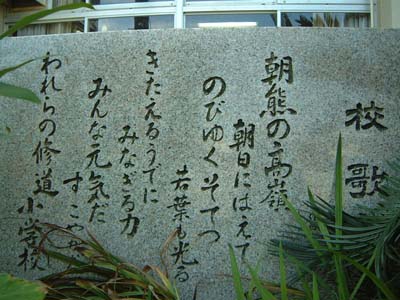 校歌
朝熊の高嶺
朝日にはえて
のびゆくそてつ
若葉も光る
きたえるうでに
みなぎる力
みんな元気だ
すこやか
われらの修道小学校